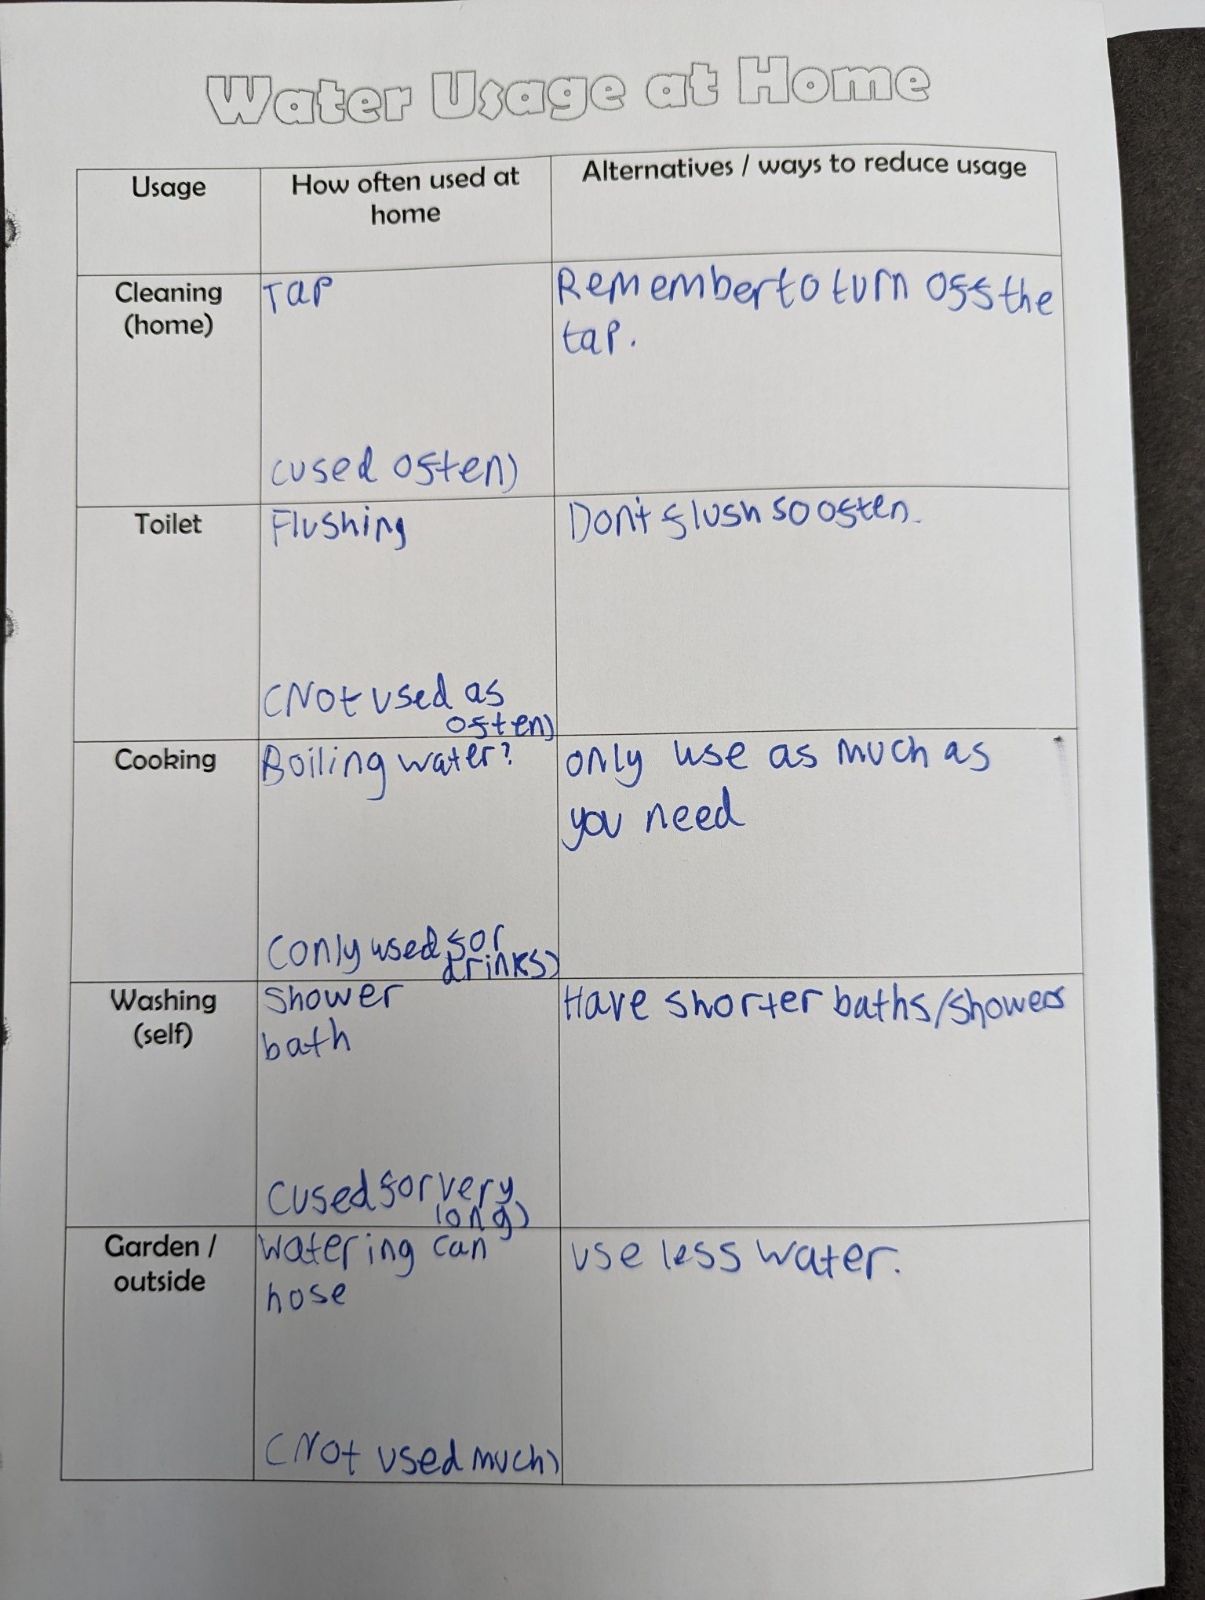 Water Usage at Home
Usage
How often used at
home
Alternatives / ways to reduce usage
Cleaning
(home)
Tap
(used often)
Remember to turn off the
tap.
Toilet
Flushing
(Not used as
often)
Don't flush so often.
Cooking
Boiling water?
(only used for
drinks)
only use as much as
you need
Washing
(self)
Shower
bath
(used for very
long)
Have shorter baths/showers
Garden /
outside
Watering can
hose
(Not used much)
use less water.